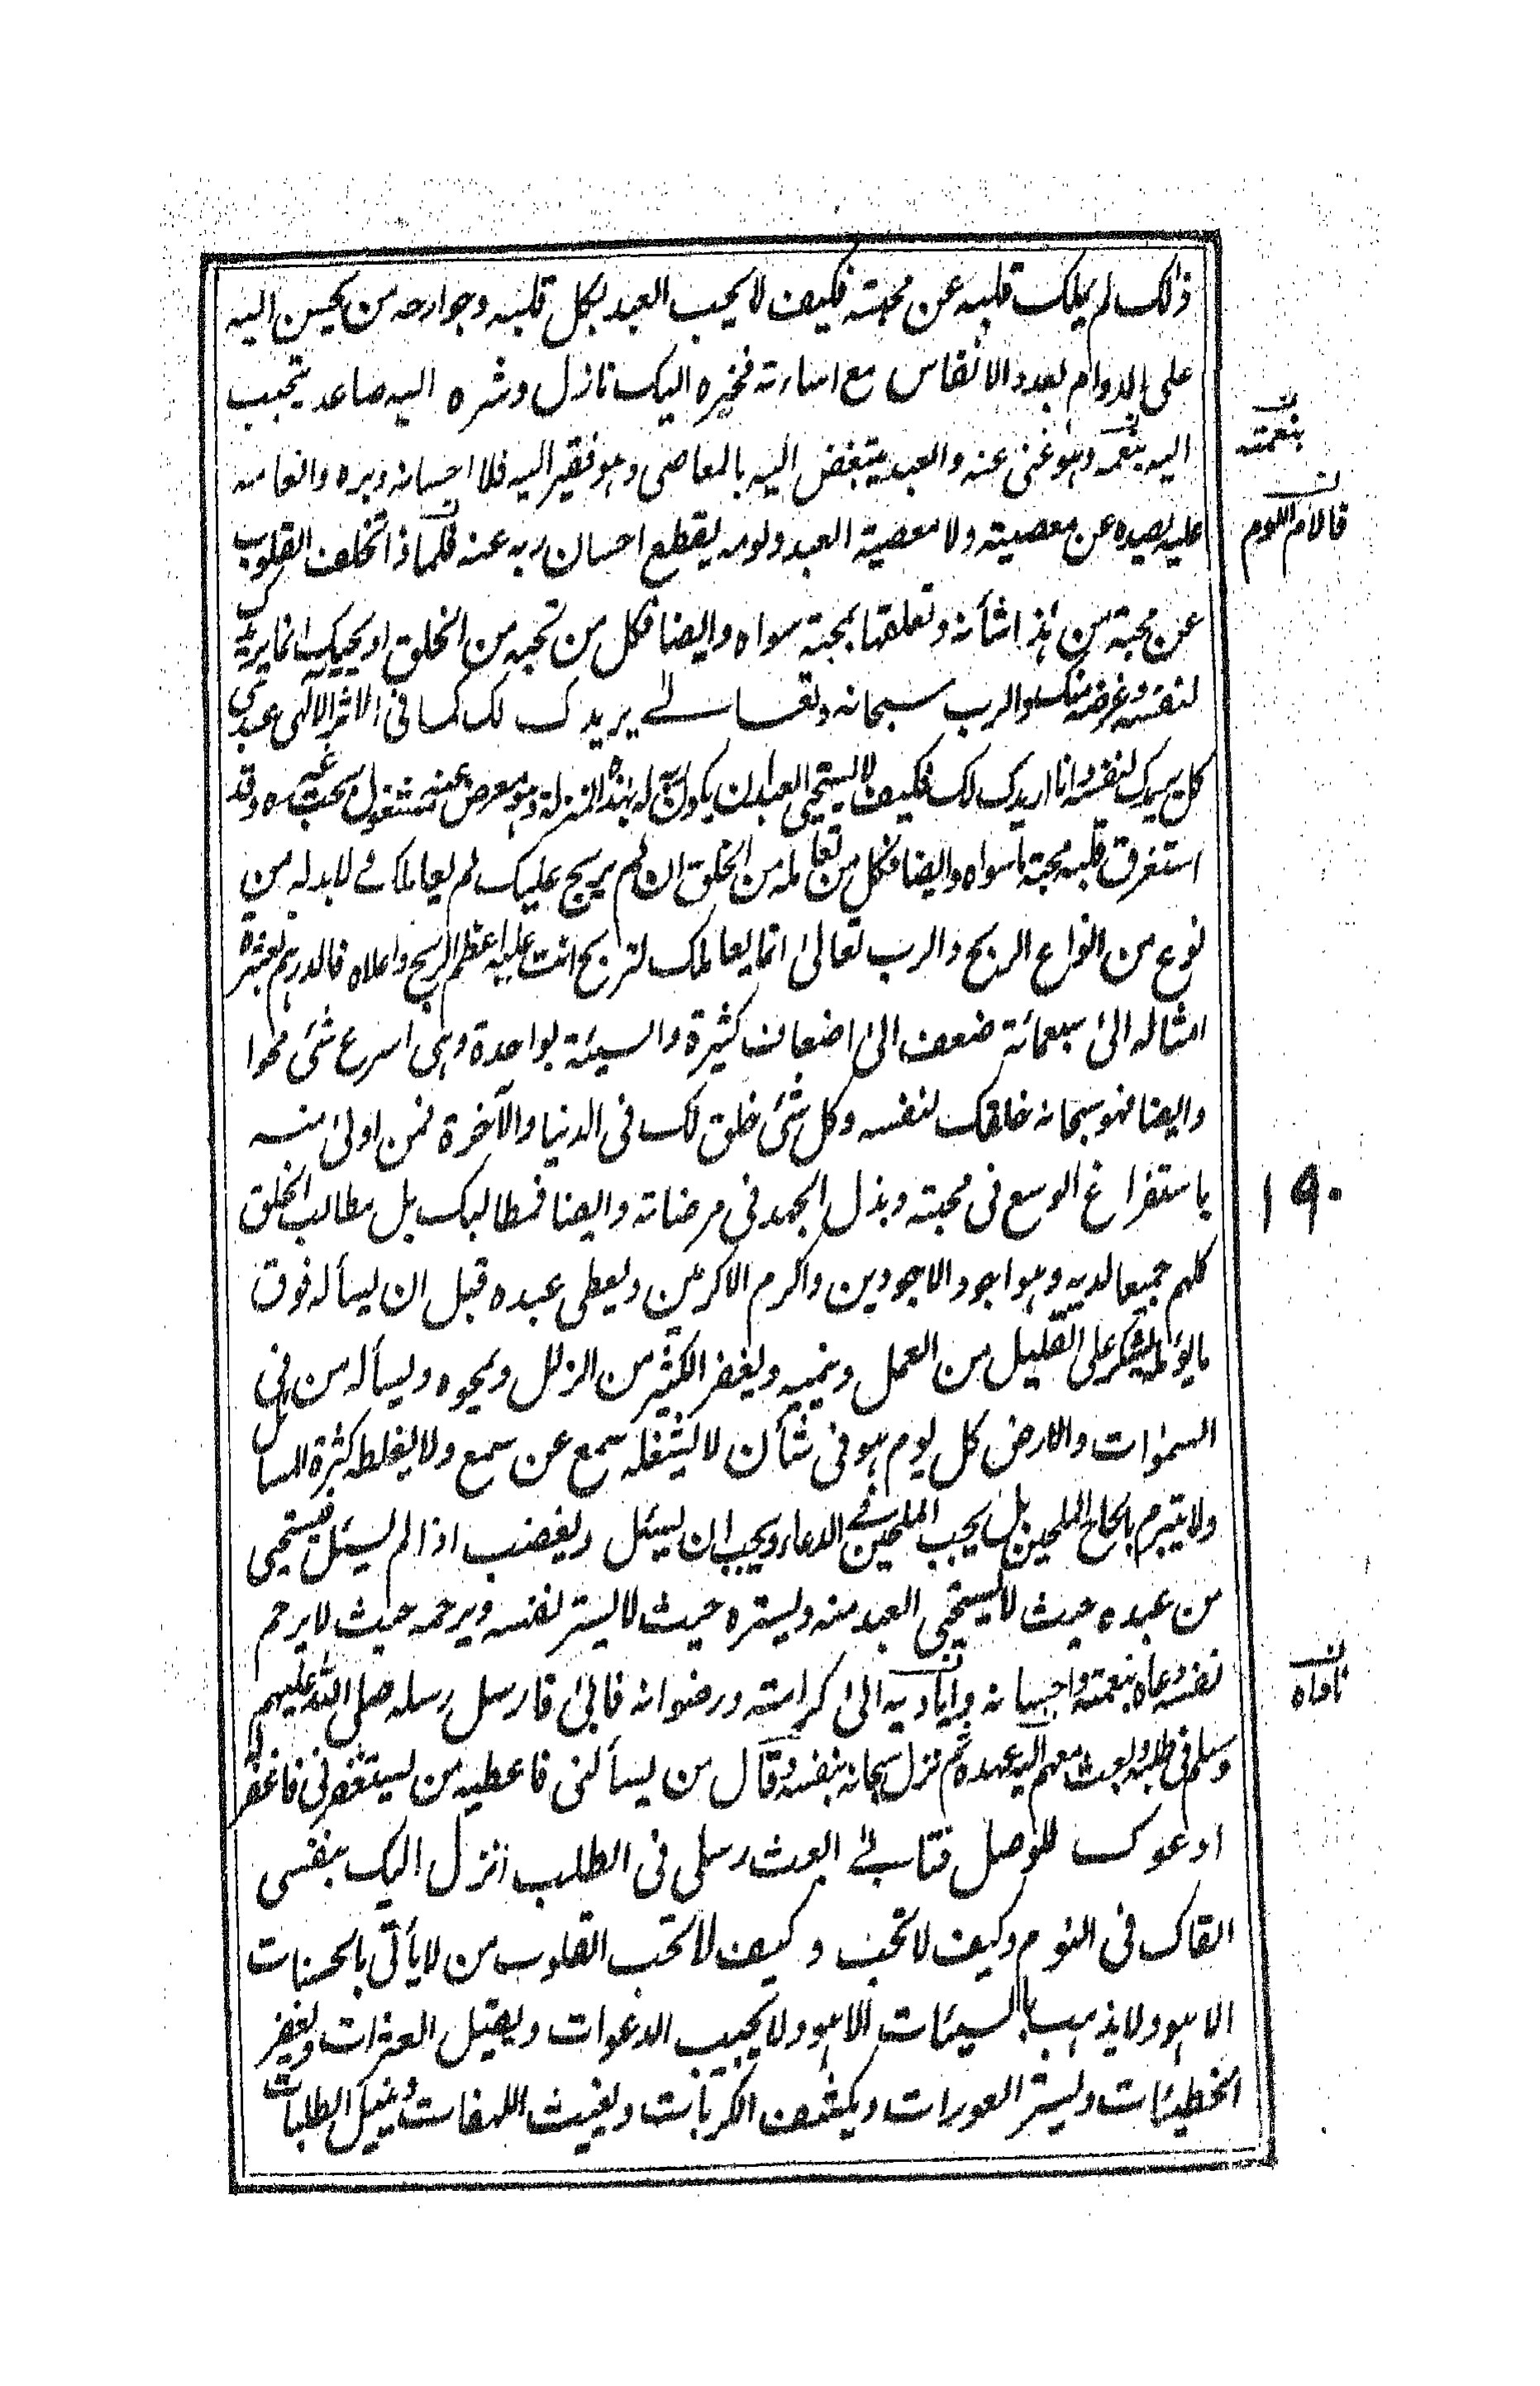 ذلك لم يملك قلبه عن محبته فكيف لا يحب العبد بكل قلبه وجوارحه من يحسن اليه
على الدوام بعدد الانفاس مع اساءته فخيره اليك نازل وشره اليه صاعد يتحبب
اليه بنعمه وهو غنى عنه والعبد يتبغض اليه بالمعاصى وهو فقير اليه فلا احسانه وبره وانعامه
عليه يصده عن معصيته ولا معصية العبد ولومه يقطع احسان ربه عنه فلماذا تخلف القلوب
عن محبة من هذا شأنه وتعلقها بمحبة سواه وايضا فكل من تحبه من الخلق او يحبك انما يريدك
لنفسه وغرضه منك والرب سبحانه وتعالے يريدك لك كما فى الاثر الالهى عبدى
كل يريدك لنفسه وانا اريدك لك فكيف لا يستحيى العبد ان يكون ربه له بهذه المنزلة وهو معرض عنه مشغول بحب غيره وقد
استغرق قلبه محبة ما سواه وايضا فكل من تعامله من الخلق ان لم يربح عليك لم يعاملك ولا بد له من
نوع من انواع الربح والرب تعالى انما يعاملك لتربح انت عليه اعظم الربح واعلاه فالدرهم بعشرة
امثاله الى سبعمائة ضعف الى اضعاف كثيرة والسيئة بواحدة وهى اسرع شئ محوا
وايضا فهو سبحانه خلقك لنفسه وكل شئ خلق لك فى الدنيا والآخرة فمن اولى منه
باستفراغ الوسع فى محبته وبذل الجهد فى مرضاته وايضا فمطالبك بل مطالب الخلق
كلهم جميعا لديه وهو اجود الاجودين واكرم الاكرمين ويعطى عبده قبل ان يسأله فوق
ما يؤمله يشكر على القليل من العمل وينميه ويغفر الكثير من الزلل ويمحوه ويسأله من فى
السموات والارض كل يوم هو فى شأن لا يشغله سمع عن سمع ولا يغلطه كثرة المسائل
ولا يتبرم بالحاح الملحين بل يحب الملحين فے الدعاء ويحب ان يسئل ويغضب اذا لم يسئل فيستحيى
من عبده حيث لا يستحيى العبد منه ويستره حيث لا يستر نفسه ويرحمه حيث لا يرحم
نفسه ودعاه بنعمته واحسانه واياديه الى كرامته ورضوانه فابى فارسل رسله صلى الله عليهم
وسلم فى طلبه وبعث معهم اليه عهده ثم نزل سبحانه بنفسه وقال من يسألنى فاعطيه من يستغفرنى فاغفر له
ادعوك للوصل فتابے ابعث رسلى فى الطلب انزل اليك بنفسى
القاك فى النوم وكيف لا تحب وكيف لا تحب القلوب من لا يأتى بالحسنات
الا هو ولا يذهب بالسيئات الا هو ولا يجيب الدعوات ويقيل العثرات ويغفر
الخطيئات ويستر العورات ويكشف الكربات ويغيث اللهفات وينيل الطلبات
بنعمته
فالام اللوم
١٩٠
ناداه